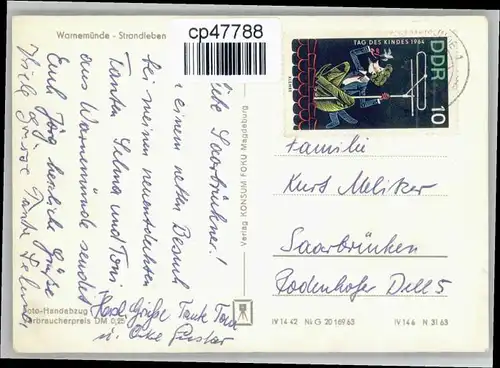 Warnemünde - Strandleben
cp47788
Liebe Saarbrückner!
einem netten Besuch
bei meinen neuentdeckten
Tanten Selma und Toni
aus Warnemünde sendet
Euch Jörg herzliche Grüße
Viele Grüße Tante Selma
Herzl. Grüße Tante Toni
u. Onkel Gustav
Foto-Handabzug
Verbraucherpreis DM 0,25
Verlag KONSUM FOKU Magdeburg
TAG DES KINDES 1964
DDR
10
Familie
Kurt Melitzer
Saarbrücken
Rodenhofer Dell 5
IV 14 42 Ni G 20 169 63
IV 14 6 N 31 63